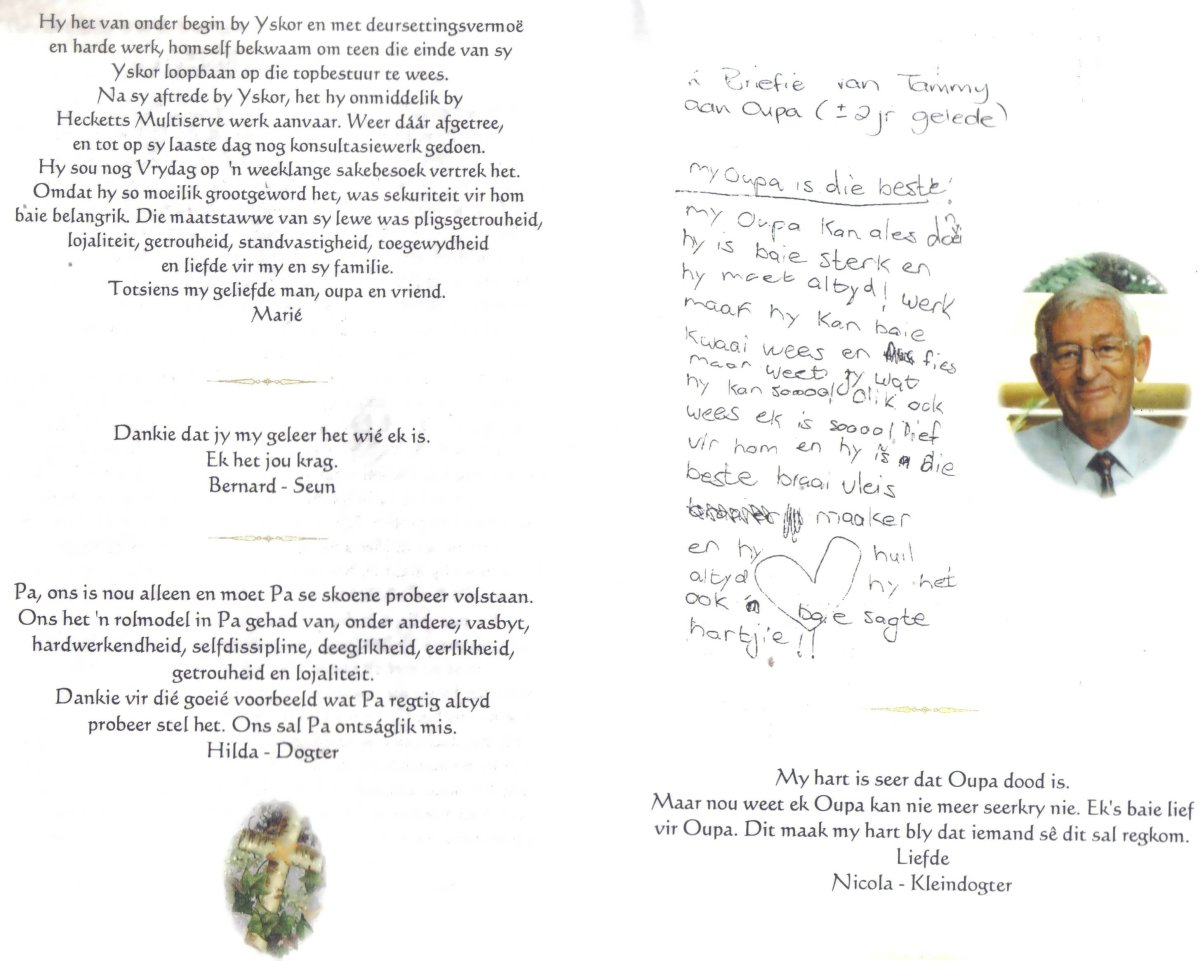 Hy het van onder begin by Yskor en met deursettingsvermoë
en harde werk, homself bekwaam om teen die einde van sy
Yskor loopbaan op die topbestuur te wees.
Na sy aftrede by Yskor, het hy onmiddelik by
Hecketts Multiserve werk aanvaar. Weer dáár afgetree,
en tot op sy laaste dag nog konsultasiewerk gedoen.
Hy sou nog Vrydag op 'n weeklange sakebesoek vertrek het.
Omdat hy so moeilik grootgeword het, was sekuriteit vir hom
baie belangrik. Die maatstawwe van sy lewe was pligsgetrouheid,
lojaliteit, getrouheid, standvastigheid, toegewydheid
en liefde vir my en sy familie.
Totsiens my geliefde man, oupa en vriend.
Marié
Dankie dat jy my geleer het wié ek is.
Ek het jou krag.
Bernard - Seun
Pa, ons is nou alleen en moet Pa se skoene probeer volstaan.
Ons het 'n rolmodel in Pa gehad van, onder andere; vasbyt,
hardwerkendheid, selfdissipline, deeglikheid, eerlikheid,
getrouheid en lojaliteit.
Dankie vir dié goeié voorbeeld wat Pa regtig altyd
probeer stel het. Ons sal Pa ontságlik mis.
Hilda - Dogter
'n Briefie van Tammy
aan Oupa (± 2 jr gelede)
my Oupa is die beste!
my Oupa kan ales doen
hy is baie sterk en
hy moet altyd! werk
maar hy kan baie
kwaai wees en fies
maar weet jy wat
hy kan sooooo! olik ock
wees ek is soooo! lief
vir hom en hy is die
beste braai vleis
maaker
en hy huil
altyd hy het
ook 'n baie sagte
hartjie!!
My hart is seer dat Oupa dood is.
Maar nou weet ek Oupa kan nie meer seerkry nie. Ek's baie lief
vir Oupa. Dit maak my hart bly dat iemand sê dit sal regkom.
Liefde
Nicola - Kleindogter